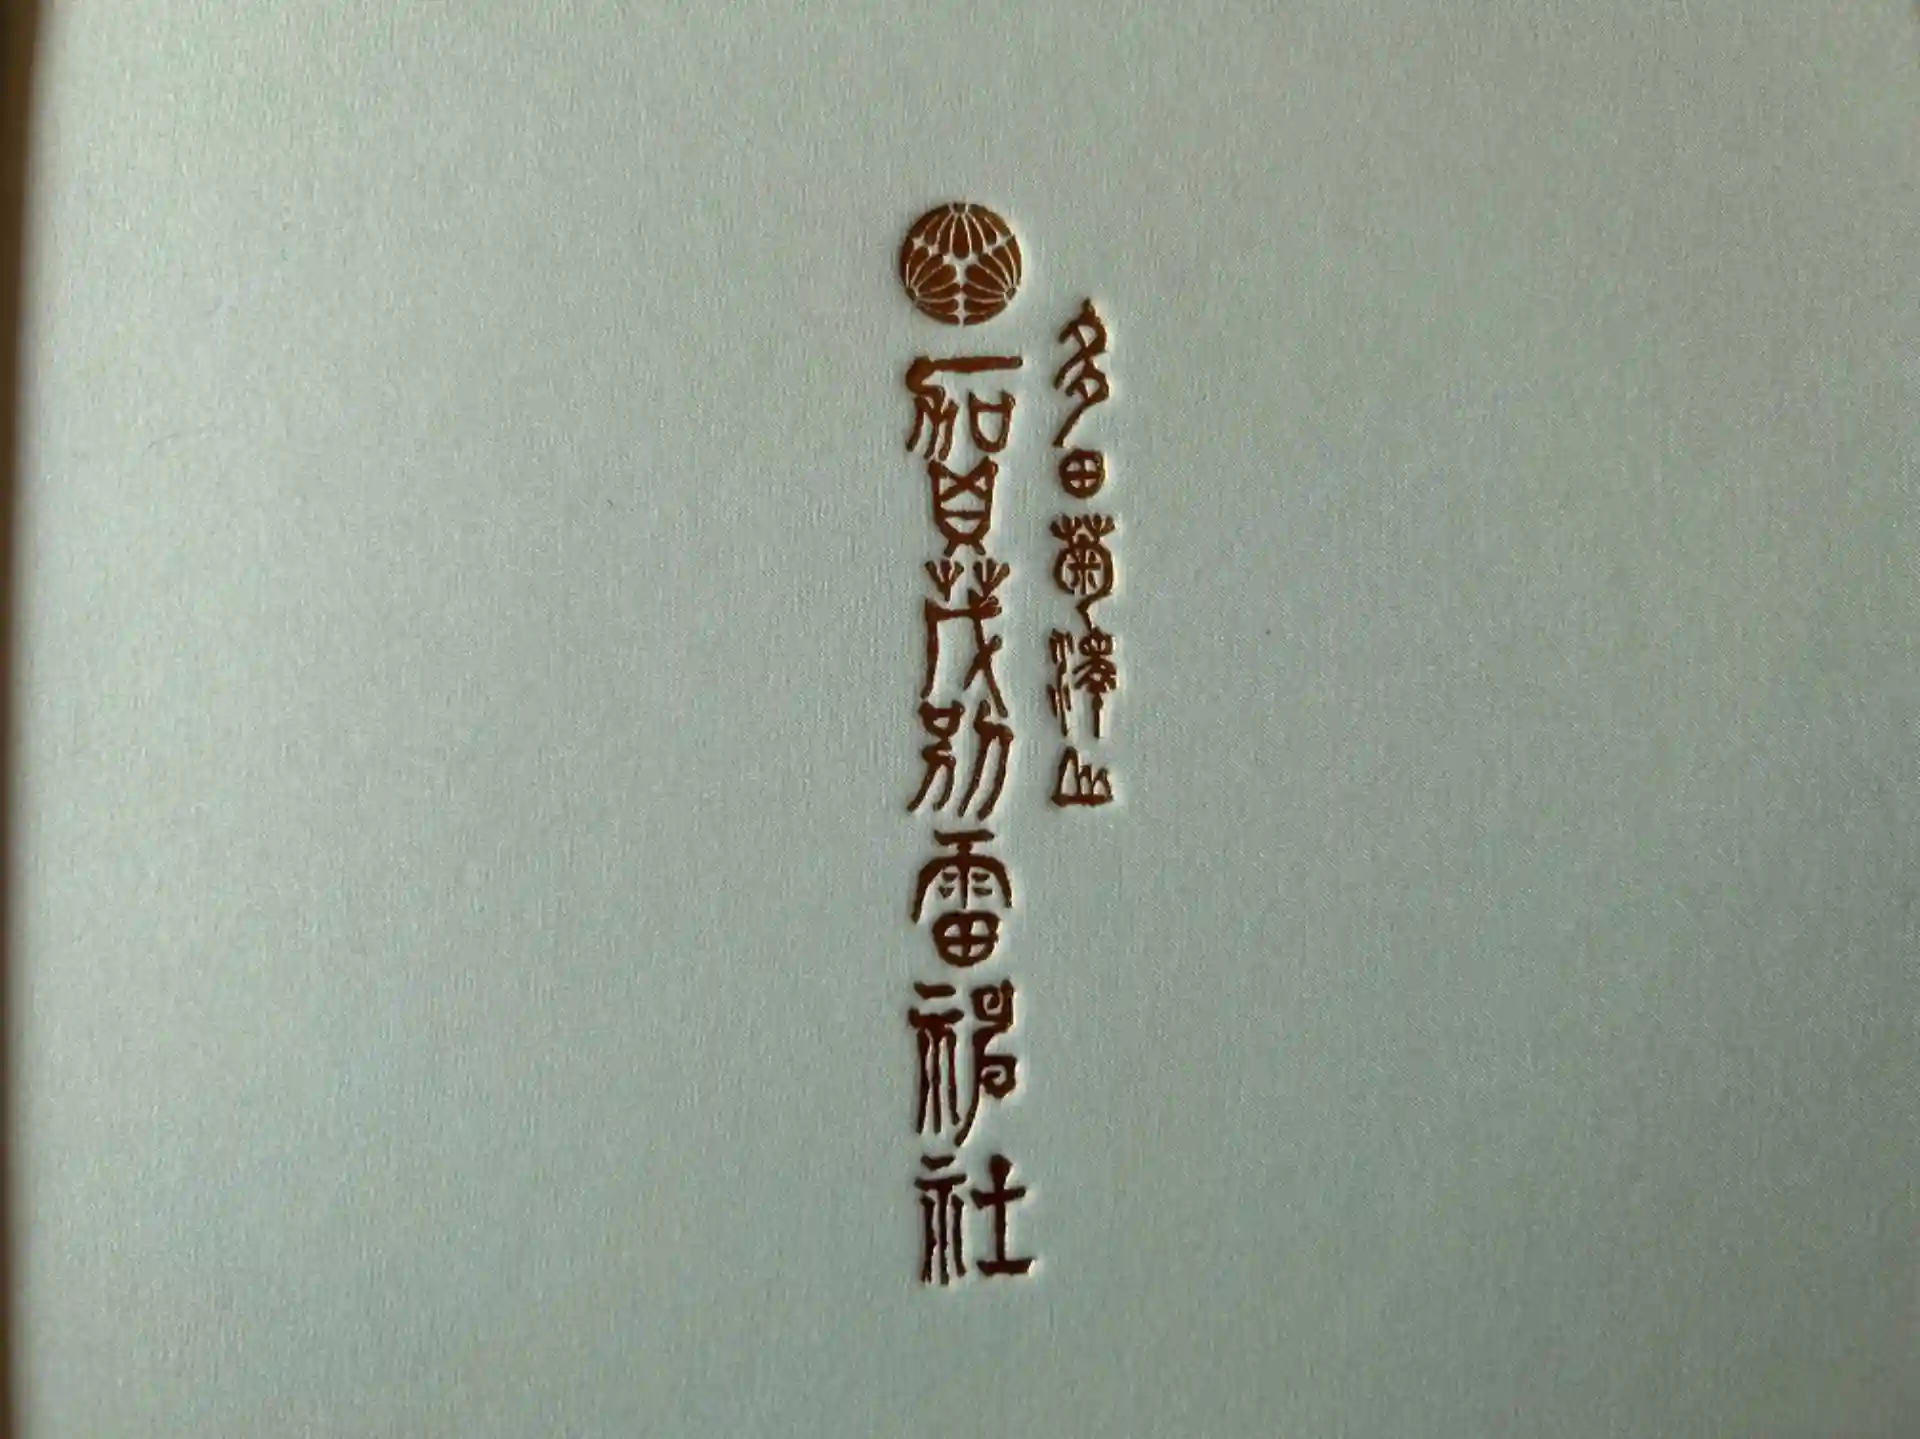 多田菊澤山
賀茂別雷神社